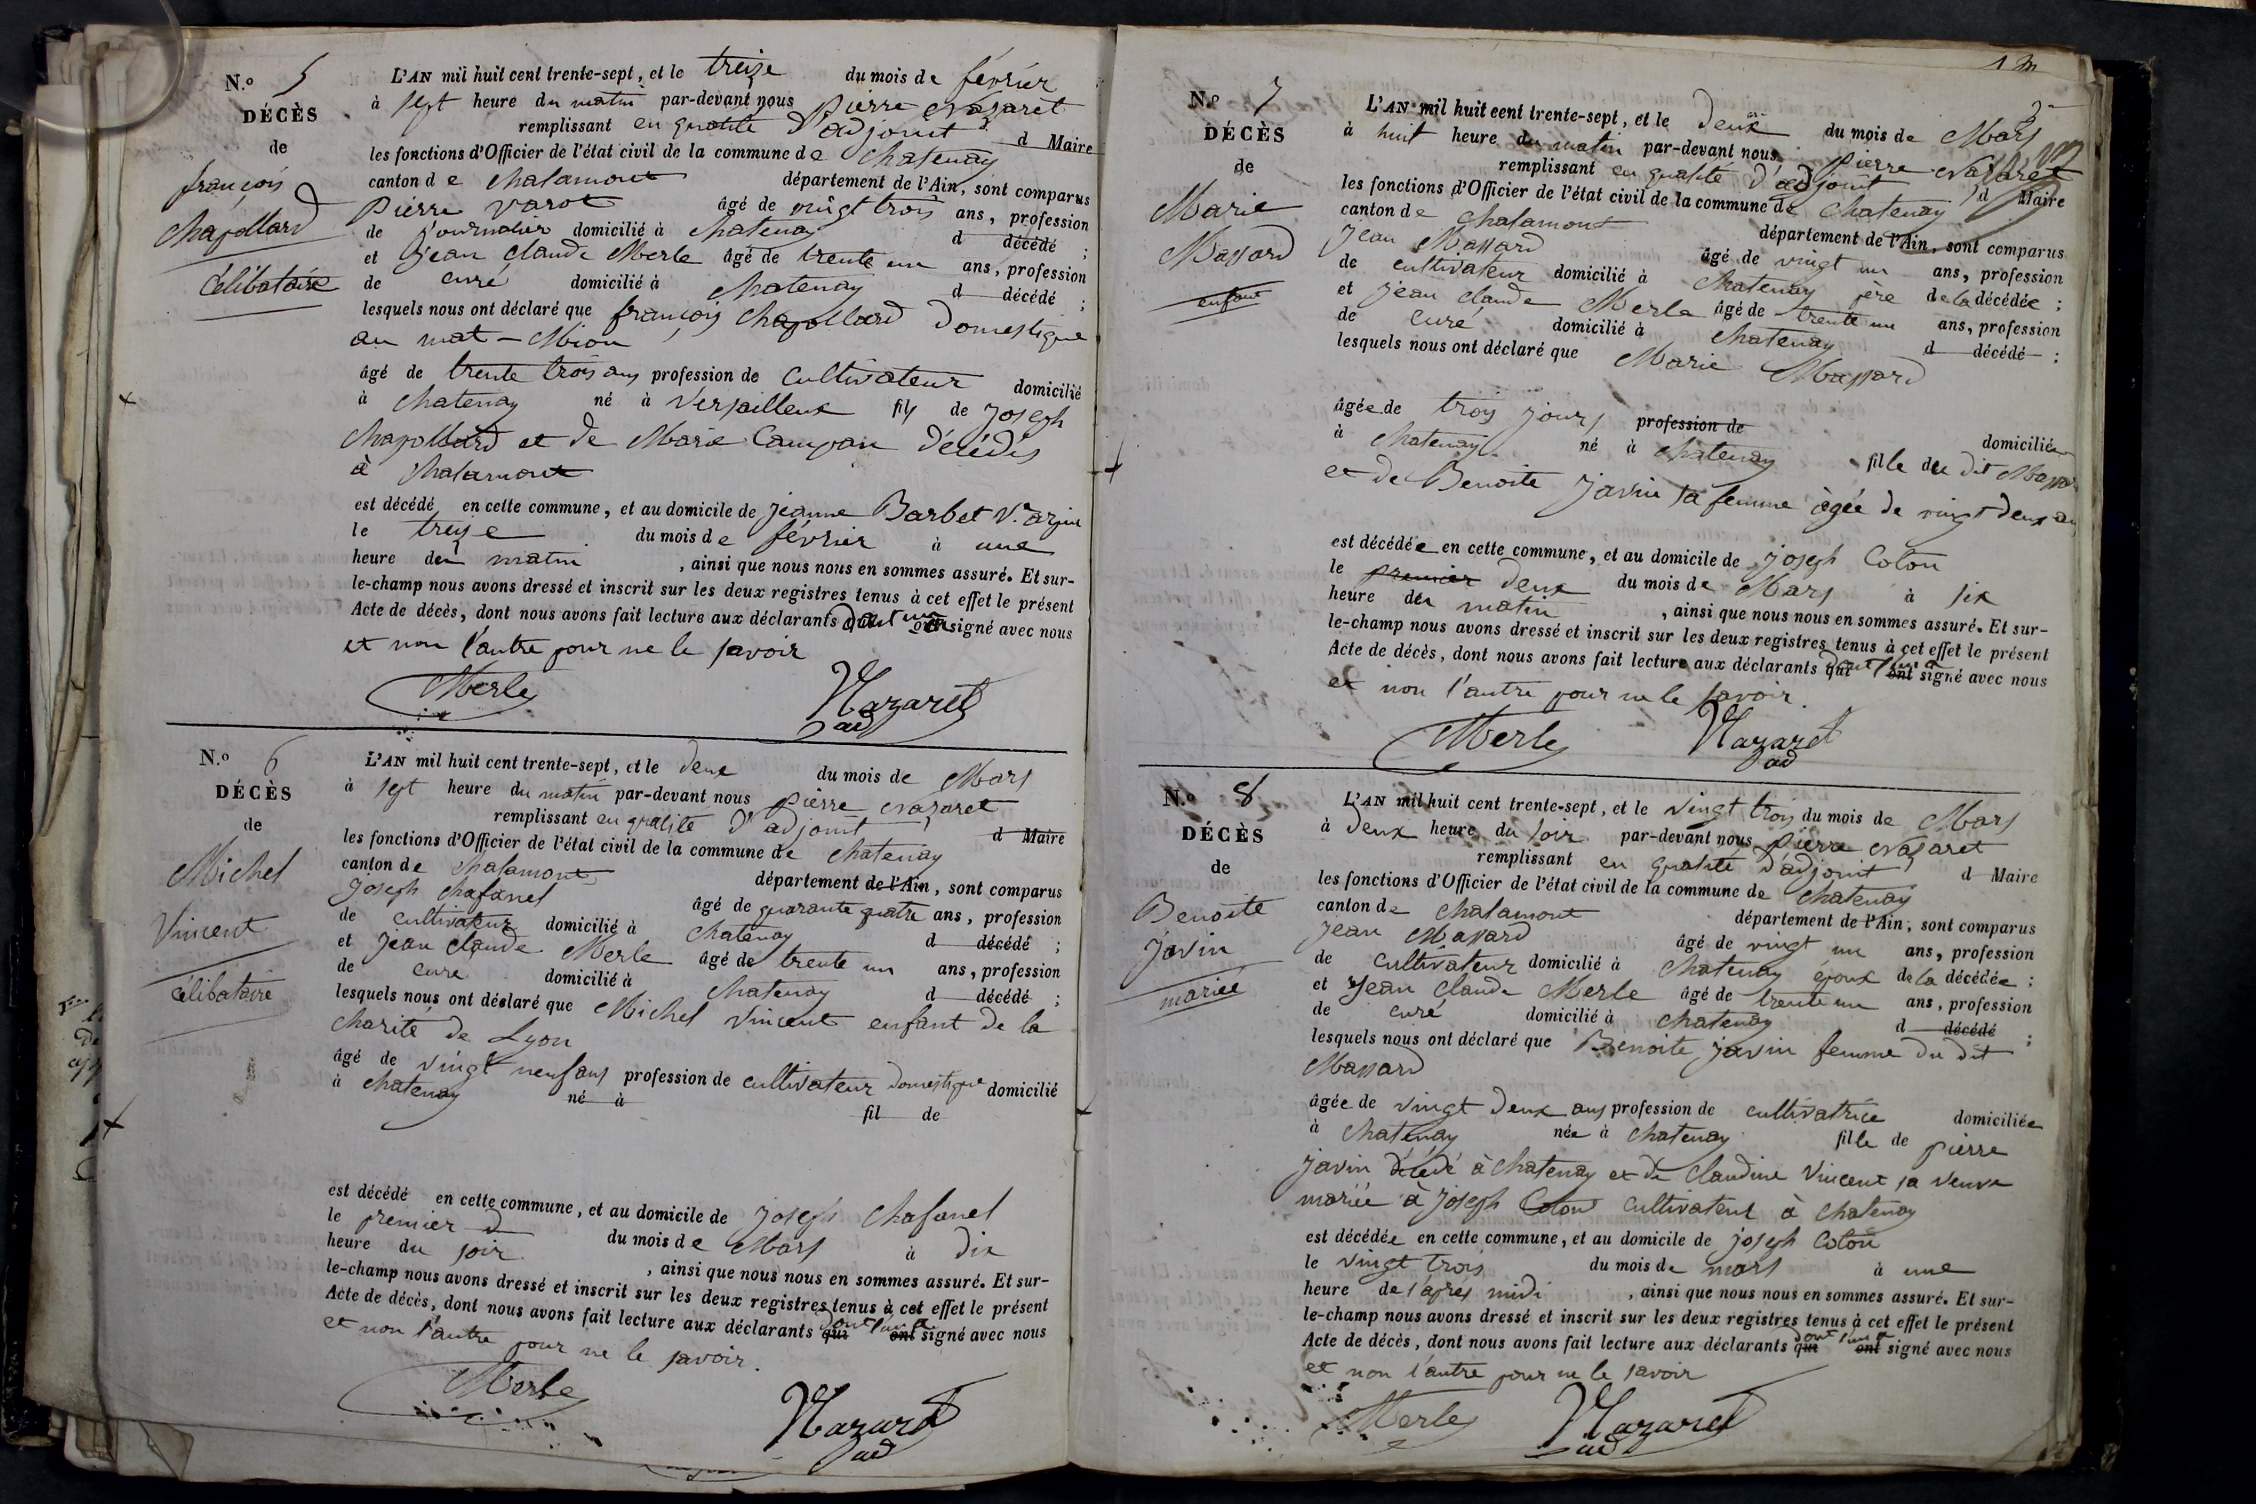 N.º 5
DÉCÈS
de
françois
Chapollard
Célibataire
L'AN mil huit cent trente-sept, et le treize du mois de février
à sept heure du matin par-devant nous pierre Nazaret
remplissant en qualité d'adjoint d Maire
les fonctions d'Officier de l'état civil de la commune de Chatenay
canton de Chalamont département de l'Ain, sont comparus
Pierre Varot âgé de vingt trois ans, profession
de journalier domicilié à Chatenay d décédé ;
et Jean Claude Merle âgé de trente un ans, profession
de curé domicilié à Chatenay d décédé ;
lesquels nous ont déclaré que françois Chapollard Domestique
au mat-Mion
âgé de trente trois ans profession de Cultivateur domicilié
à Chatenay né à Versailleux fils de Joseph
Chapollard et de Marie Campan décédés
à Chalamont
est décédé en cette commune, et au domicile de jeanne Barbet V.e
le treize du mois de février à une
heure du matin , ainsi que nous nous en sommes assuré. Et sur-
le-champ nous avons dressé et inscrit sur les deux registres tenus à cet effet le présent
Acte de décès, dont nous avons fait lecture aux déclarants dont l'un a signé avec nous
et non l'autre pour ne le savoir
Merle Nazaret
ad
N.º 6
DÉCÈS
de
Michel
Vincent
Célibataire
L'AN mil huit cent trente-sept, et le deux du mois de Mars
à sept heure du matin par-devant nous pierre Nazaret
remplissant en qualité d'adjoint d Maire
les fonctions d'Officier de l'état civil de la commune de Chatenay
canton de Chalamont département de l'Ain, sont comparus
Joseph Chafanel âgé de quarante quatre ans, profession
de cultivateur domicilié à Chatenay d décédé ;
et Jean Claude Merle âgé de trente un ans, profession
de curé domicilié à Chatenay d décédé ;
lesquels nous ont déclaré que Michel Vincent enfant de la
Charité de Lyon
âgé de vingt neuf ans profession de cultivateur domestique domicilié
à Chatenay né à fil de
est décédé en cette commune, et au domicile de Joseph Chafanel
le premier du mois de Mars à dix
heure du soir , ainsi que nous nous en sommes assuré. Et sur-
le-champ nous avons dressé et inscrit sur les deux registres tenus à cet effet le présent
Acte de décès, dont nous avons fait lecture aux déclarants qui dont l'un a ont signé avec nous
et non l'autre pour ne le savoir.
Merle Nazaret
ad
N.º 7
DÉCÈS
de
Marie
Massard
enfant
L'AN mil huit cent trente-sept, et le deux du mois de Mars
à huit heure du matin par-devant nous pierre Nazaret
remplissant en qualité d'adjoint d Maire
les fonctions d'Officier de l'état civil de la commune de Chatenay
canton de Chalamont département de l'Ain, sont comparus
Jean Massard âgé de vingt un ans, profession
de cultivateur domicilié à Chatenay père de la décédée ;
et Jean Claude Merle âgé de trente un ans, profession
de curé domicilié à Chatenay d décédé ;
lesquels nous ont déclaré que Marie Massard
âgée de trois jours profession de domiciliée
à Chatenay né à Chatenay fille du dit Massard
et de Benoite Javin sa femme âgée de vingt deux ans
est décédée en cette commune, et au domicile de Joseph Coton
le premier deux du mois de Mars à six
heure du matin , ainsi que nous nous en sommes assuré. Et sur-
le-champ nous avons dressé et inscrit sur les deux registres tenus à cet effet le présent
Acte de décès, dont nous avons fait lecture aux déclarants qui dont l'un a ont signé avec nous
et non l'autre pour ne le savoir.
Merle Nazaret
ad
N.º 8
DÉCÈS
de
Benoite
Javin
mariée
L'AN mil huit cent trente-sept, et le vingt trois du mois de Mars
à deux heure du soir par-devant nous pierre Nazaret
remplissant en qualité d'adjoint d Maire
les fonctions d'Officier de l'état civil de la commune de Chatenay
canton de Chalamont département de l'Ain, sont comparus
Jean Massard âgé de vingt un ans, profession
de cultivateur domicilié à Chatenay époux de la décédée ;
et Jean Claude Merle âgé de trente un ans, profession
de curé domicilié à Chatenay d décédé ;
lesquels nous ont déclaré que Benoite Javin femme du dit
Massard
âgée de vingt deux ans profession de cultivatrice domiciliée
à Chatenay née à Chatenay fille de pierre
Javin décédé à Chatenay et de Claudine Vincent sa veuve
mariée à Joseph Coton cultivateur à Chatenay
est décédée en cette commune, et au domicile de Joseph Coton
le vingt trois du mois de mars à une
heure de l'après midi , ainsi que nous nous en sommes assuré. Et sur-
le-champ nous avons dressé et inscrit sur les deux registres tenus à cet effet le présent
Acte de décès, dont nous avons fait lecture aux déclarants qui dont l'un a ont signé avec nous
et non l'autre pour ne le savoir
Merle Nazaret
ad